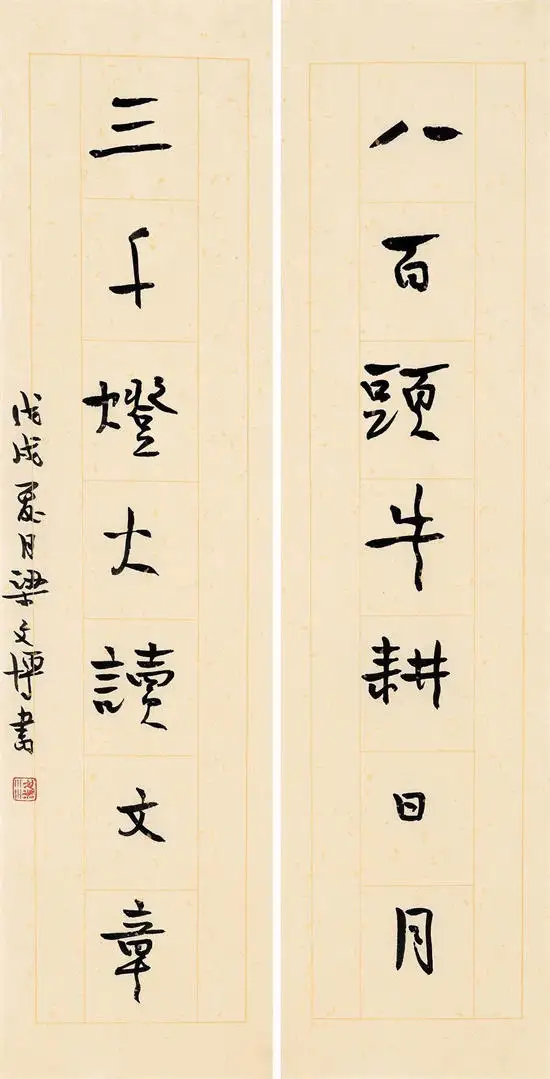 八百頭牛耕日月
三千燈火讀文章
戊戌夏月梁文博書